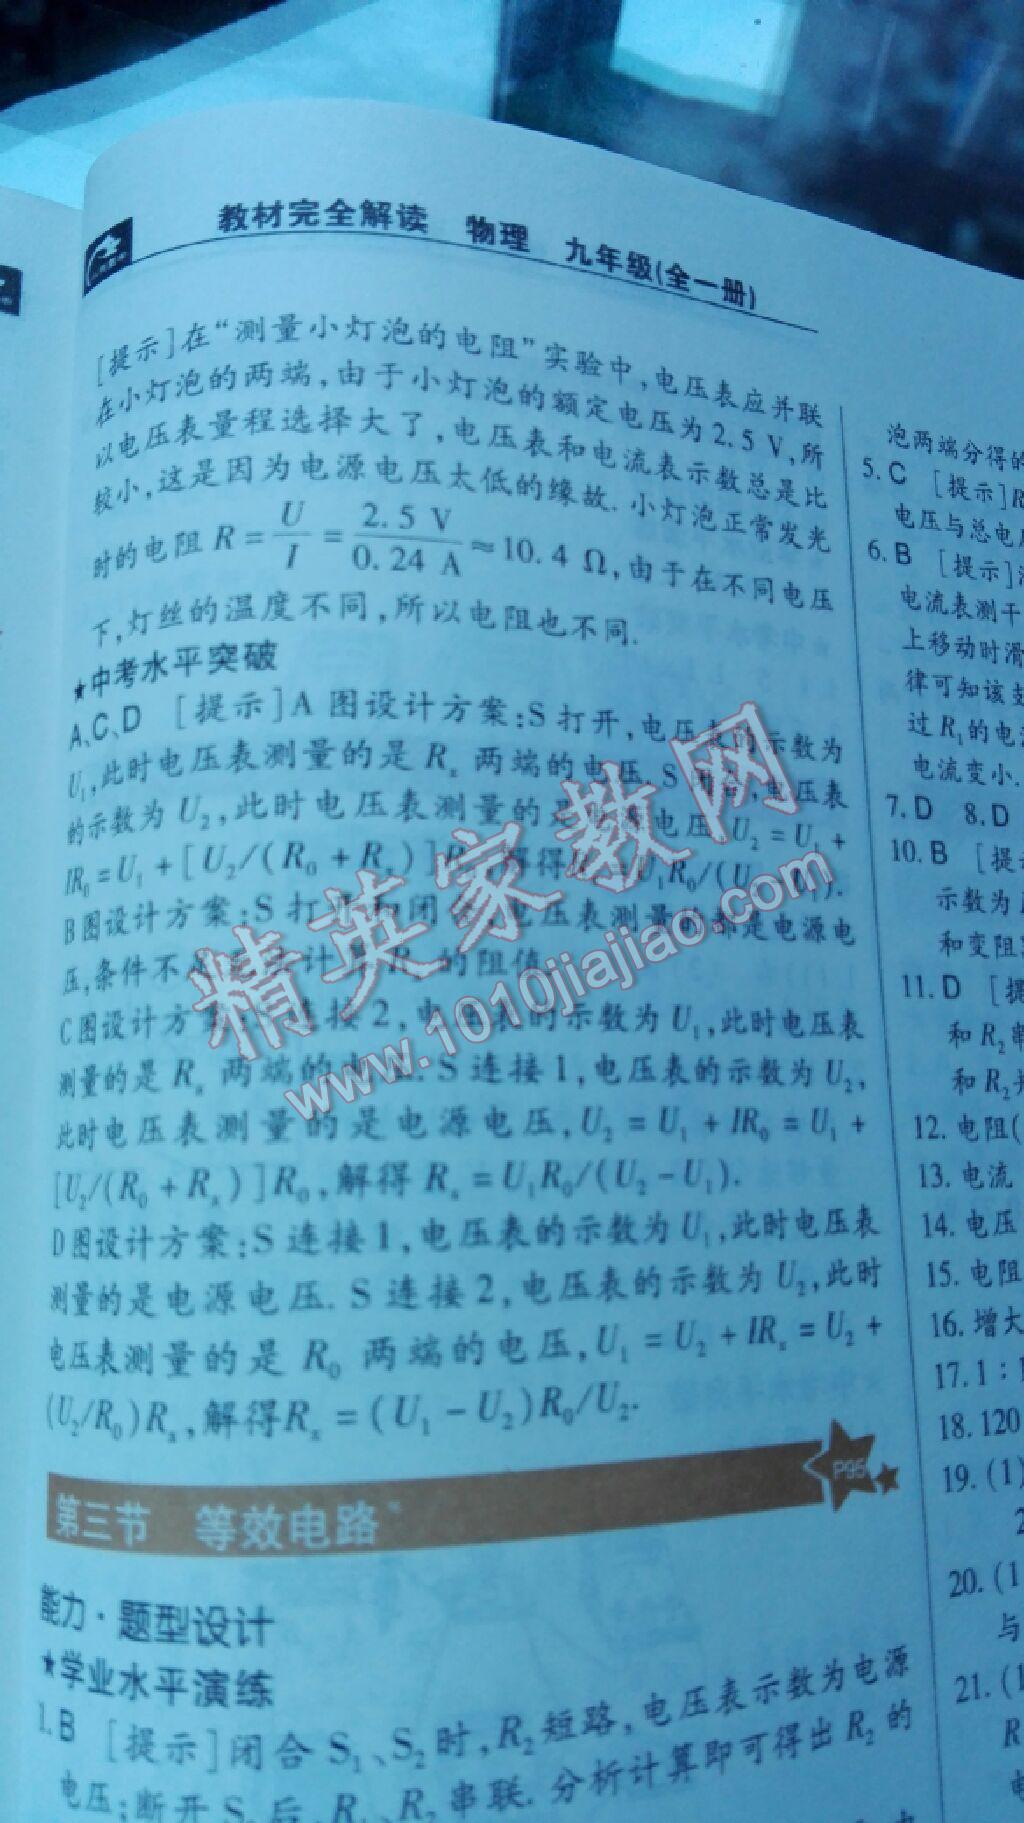 教材完全解读 物理 九年级(全一册)
[提示]在“测量小灯泡的电阻”实验中,电压表应并联
在小灯泡的两端,由于小灯泡的额定电压为2.5 V,所
以电压表量程选择大了,电压表和电流表示数总是比
较小,这是因为电源电压太低的缘故.小灯泡正常发光
时的电阻 R = U/I = 2.5 V/0.24 A ≈ 10.4 Ω,由于在不同电压
下,灯丝的温度不同,所以电阻也不同.
★中考水平突破
A、C、D [提示]A 图设计方案:S 打开,电压表的示数为
U₁,此时电压表测量的是 Rₓ 两端的电压.S 闭合,电压表
的示数为 U₂,此时电压表测量的是电源电压,U₂ = U₁ +
IR₀ = U₁ + [U₂/(R₀ + Rₓ)]R₀,解得Rₓ = U₁R₀/(U₂ - U₁).
B图设计方案:S 打开和闭合,电压表测量的都是电源电
压,条件不 计 的阻值.
C图设计方案:S 连接2,电压表的示数为 U₁,此时电压表
测量的是 Rₓ 两端的电压.S 连接1,电压表的示数为 U₂,
此时电压表测量的是电源电压,U₂ = U₁ + IR₀ = U₁ +
[U₂/(R₀ + Rₓ)]R₀,解得 Rₓ = U₁R₀/(U₂ - U₁).
D图设计方案:S 连接1,电压表的示数为 U₁,此时电压表
测量的是电源电压.S 连接2,电压表的示数为 U₂,此时
电压表测量的是 R₀ 两端的电压,U₁ = U₂ + IRₓ = U₂ +
(U₂/R₀)Rₓ,解得Rₓ = (U₁ - U₂)R₀/U₂.
第三节 等效电路
P95
能力·题型设计
★学业水平演练
1.B [提示]闭合 S₁、S₂ 时,R₂ 短路,电压表示数为电源
电压;断开 S₂ 后,R₁、R₂ 串联.分析计算即可得出 R₂ 的
泡两端分得的
5.C [提示]R
电压与总电压
6.B [提示]
电流表测干
上移动时滑
律可知该支
过 R₁ 的电流
电流变小.
7.D 8.D
10.B [提
示数为
和变阻
11.D [提
和 R₂ 串
和 R₂ 并
12.电阻(
13.电流
14.电压
15.电阻
16.增大
17.1:
18.120
19.(1)
2
20.(1
与
21.(1
R
电
精英家教网
www.1010jiajiao.com